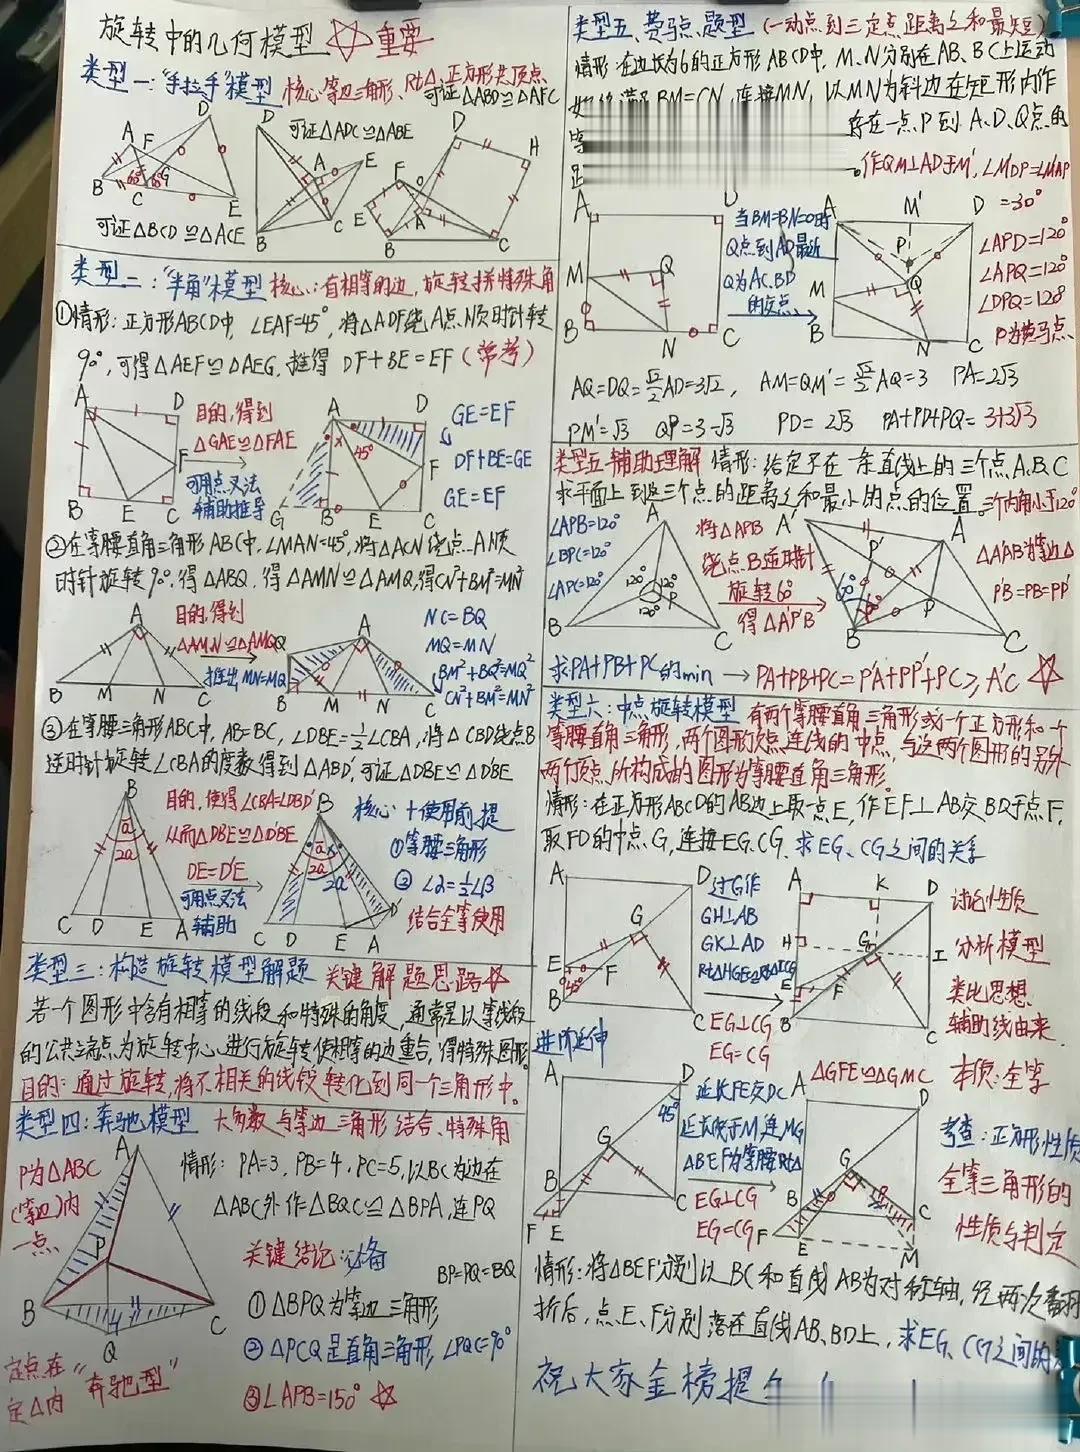 旋转中的几何模型 重要
类型一:"手拉手"模型 核心:等边三角形、Rt△、正方形共顶点
可证△ABD≌△AFC
可证△ADC≌△ABE
A F D B C G E 60° 60°
D A E B C
D H F A E B C
可证△BCD≌△ACE
类型二:"半角"模型 核心:有相等的边,旋转拼特殊角
①情形:正方形ABCD中,∠EAF=45°,将△ADF绕A点顺时针转
90°,可得△AEF≌△AEG,推得 DF+BE=EF(常考)
A D F B E C
目的,得到
△GAE≌△FAE
可用点叉法
辅助推导
A D F G B E C 45°
GE=EF
DF+BE=GE
GE=EF
②在等腰直角三角形ABC中,∠MAN=45°,将△ACN绕点A顺
时针旋转90°,得△ABQ,得△AMN≌△AMQ,得CN²+BM²=MN²
A B M N C
目的,得到
△AMN≌△AMQ
推出MN=MQ
Q A B M N C
NC=BQ
MQ=MN
BM²+BQ²=MQ²
CN²+BM²=MN²
③在等腰三角形ABC中,AB=BC,∠DBE=½∠CBA,将△CBD绕点B
逆时针旋转∠CBA的度数得到△ABD',可证△DBE≌△D'BE
B a 2a C D E A
目的,使得∠CBA=∠DBD'
从而△DBE≌△D'BE
DE=D'E
可用点叉法
辅助
B a 2a 2a C D E A D'
核心+使用前提
①等腰三角形
②∠α=½∠β
结合全等使用
类型三:构造旋转模型解题 关键解题思路
若一个图形中含有相等的线段和特殊的角度,通常是以等线段
的公共端点为旋转中心进行旋转使相等的边重合,得特殊图形
目的:通过旋转,将不相关的线段转化到同一个三角形中。
类型四:奔驰模型 大多数与等边三角形结合、特殊角
P为△ABC
(等边)内
一点
情形:PA=3,PB=4,PC=5,以BC为边在
△ABC外作△BQC≌△BPA,连PQ
A P B C Q 4
关键结论:必备
BP=PQ=BQ
①△BPQ为等边三角形
②△PCQ是直角三角形,∠PQC=90°
③∠APB=150°
定点在
定△内
"奔驰型"
类型五、费马点题型(一动点到三定点距离之和最短)
情形:在边长为6的正方形ABCD中,M、N分别在AB、BC上运动
BM=CN,连接MN,以MN为斜边在矩形内作
等
存在一点P到A、D、Q点的
作QM⊥AD于M',∠MDP=∠MAP
=30°
A D M Q B N C
当BM=BN=0时
Q点到AD最近
Q为AC、BD
的交点
A M' D P Q M B N C
∠APD=120°
∠APQ=120°
∠DPQ=128
P为费马点
AQ=DQ=√2/2AD=3√2, AM=QM'=√2/2AQ=3 PA=2√3
PM'=√3 QP=3-√3 PD=2√3 PA+PD+PQ=3+3√3
类型五-辅助理解 情形:给定不在一条直线上的三个点A、B、C
求平面上到这三个点的距离之和最小的点的位置。三个内角小于120°
∠APB=120°
∠BPC=120°
∠APC=120°
A B C P 120° 120° 120°
将△APB
绕点B逆时针
旋转60°
得△A'P'B
A' A P' P B C 60° 60°
△A'AB为等边△
P'B=PB=PP'
求PA+PB+PC的min → PA+PB+PC=P'A+PP'+PC≥A'C
类型六:中点旋转模型 有两个等腰直角三角形或一个正方形和一个
等腰直角三角形,两个图形顶点连线的中点,与这两个图形的另外
两个顶点所构成的图形为等腰直角三角形。
情形:在正方形ABCD的AB边上取一点E,作EF⊥AB交BD于点F,
取FD的中点G,连接EG、CG,求EG、CG之间的关系
A D G E F B C 45°
过G作
GH⊥AB
GK⊥AD
Rt△HGE≌Rt△ICG
EG⊥CG
EG=CG
A K D H G I E F B C
讨论性质
分析模型
类比思想
辅助线由来
进阶延伸
A D G B C F E 45°
延长FE交DC
延长线于M,连MG
△BEF为等腰Rt△
EG⊥CG
EG=CG
△GFE≌△GMC
A D G B C F E M
本质:全等
考查:正方形性质
全等三角形的
性质与判定
情形:将△BEF分别以BC和直线AB为对称轴,经两次翻
折后,点E、F分别落在直线AB、BD上,求EG、CG之间的
祝大家金榜提